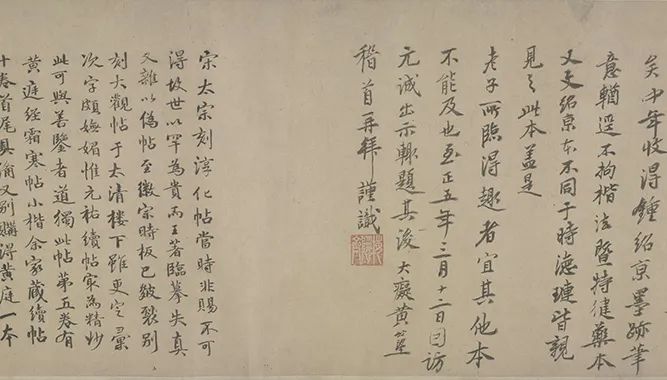 矣中年收得鍾紹京墨跡筆
意輶逕不拘楷法暨特健藥本
又文紹京本不同于時德璉皆親
見之此本蓋是
老子所臨得趣者宜其他本
不能及也至正五年三月十二日因訪
元誠出示輙題其後大癡黃公望
稽首再拜謹識
宋太宗刻淳化帖當時非賜不可
得故世以罕為貴而王著臨摹失真
又雜以偽帖至徽宗時板已皴裂別
刻大觀帖于太清樓下雖更定彙
次字頗嫵媚惟元祐續帖㝡為精妙
此可與善鑒者道獨此帖第五卷有
黃庭經霜寒帖小楷余家藏續帖
十卷首尾具備又別購得黃庭一本